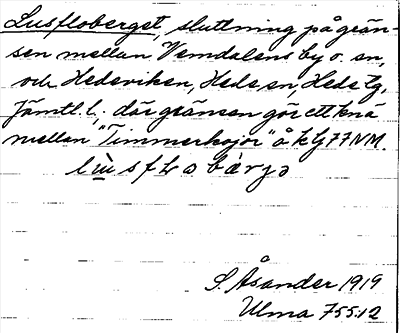 Lusfloberget, sluttning på grän-
sen mellan Vemdalens by o. sn,
och Hedeviken, Hede sn, Hede tg,
Jämtl. l.; där gränsen gör ett knä
mellan "Timmerkojor" å k bl 77 NM.
S. Åsander 1919
Ulma 755:12